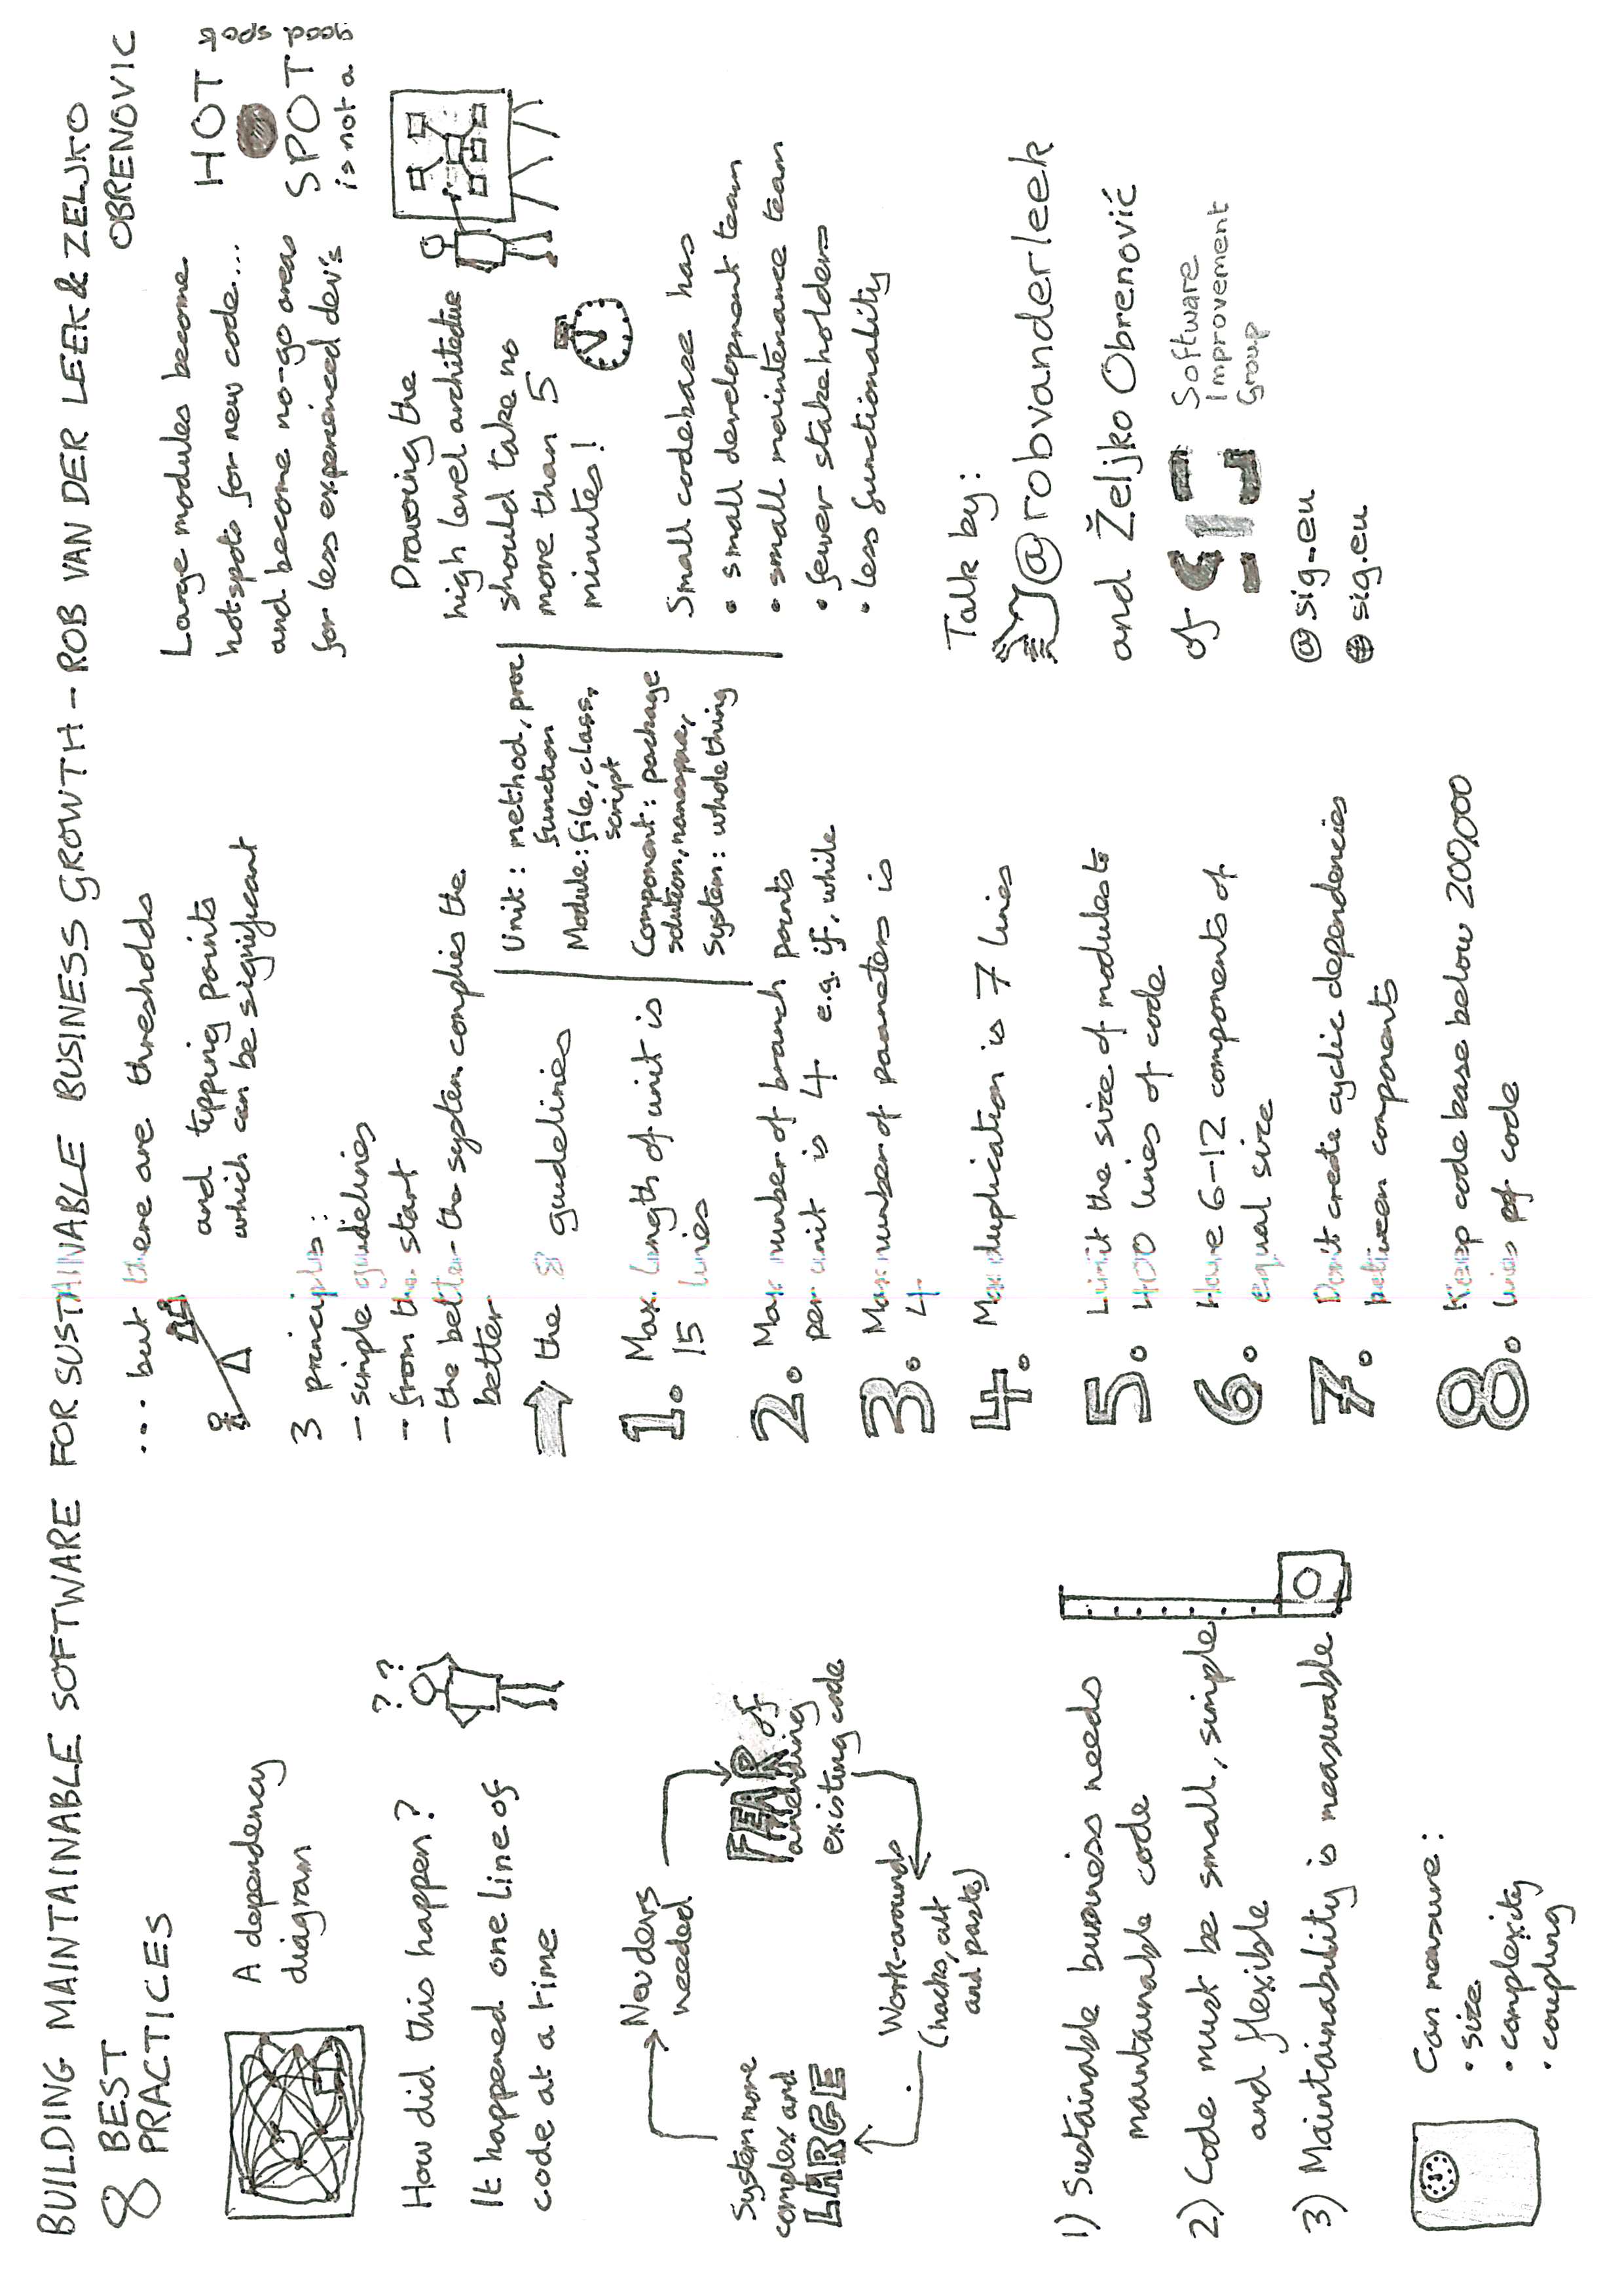 BUILDING MAINTAINABLE SOFTWARE FOR SUSTAINABLE BUSINESS GROWTH - ROB VAN DER LEEK & ZELJKO
OBRENOVIC
8 BEST
PRACTICES
A dependency
diagram
How did this happen?
? ?
It happened one line of
code at a time
New devs
needed
FEAR of
amending
existing code
Work-arounds
(hacks, cut
and paste)
System more
complex and
LARGE
1) Sustainable business needs
maintainable code
2) Code must be small, simple
and flexible
3) Maintainability is measurable
Can measure:
• size
• complexity
• coupling
... but there are thresholds
and tipping points
which can be significant
3 principles:
- simple guidelines
- from the start
- the better the system complies the
better
the 8 guidelines
Unit: method, proc
function
Module: file, class,
script
Component: package
solution, namespace,
System: whole thing
1. Max. length of unit is
15 lines
2. Max number of branch points
per unit is 4 e.g. if, while
3. Max number of parameters is
4
4. Max duplication is 7 lines
5. Limit the size of modules to
400 lines of code
6. Have 6-12 components of
equal size
7. Don't create cyclic dependencies
between components
8. Keep code base below 200,000
lines of code
Large modules become
hotspots for new code...
and become no-go areas
for less experienced dev's
HOT
SPOT
is not a
good spot
Drawing the
high level architecture
should take no
more than 5
minutes!
Small codebase has
• small development team
• small maintenance team
• fewer stakeholders
• less functionality
Talk by:
@robvanderleek
and Željko Obrenović
of SIG Software
Improvement
Group
@sig_eu
sig.eu